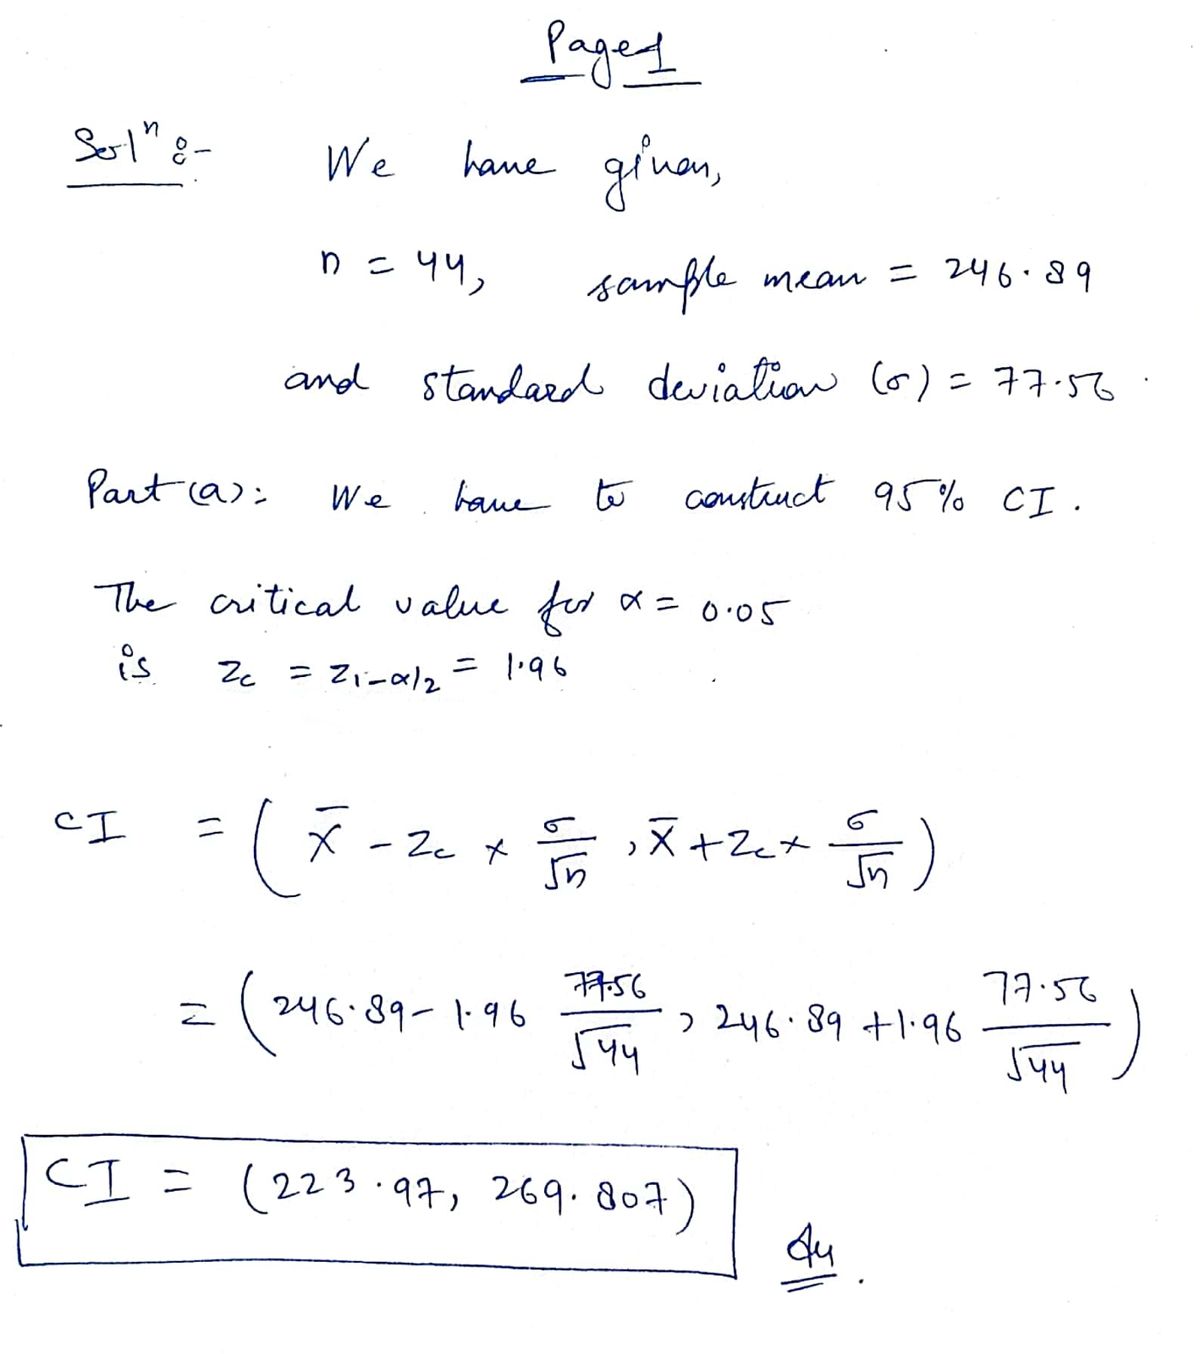 Page 1
Solⁿ :- We have given,
n = 44, sample mean = 246.89
and standard deviation (σ) = 77.56.
Part (a): We have to construct 95% CI.
The critical value for α = 0.05
is Zc = Z1-α/2 = 1.96
CI = ( X̄ - Zc × σ/√n , X̄ + Zc × σ/√n )
= ( 246.89 - 1.96 77.56/√44 , 246.89 + 1.96 77.56/√44 )
CI = (223.97, 269.807)